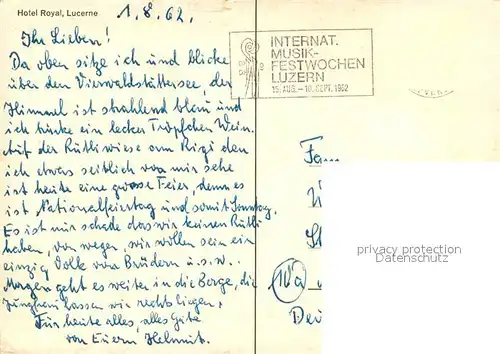 Hotel Royal, Lucerne
1.8.62.
Ihr Lieben!
Da oben sitze ich und blicke
über den Vierwaldstättersee, der
Himmel ist strahlend blau und
ich trinke ein lecker Tröpfchen Wein.
Auf der Rütliwiese am Rigi den
ich etwas seitlich von mir sehe
ist heute eine grosse Feier, denn es
ist Nationalfeiertag und somit Sonntag.
Es ist mir schade das wir keinen Rütli
haben, von wegen, wir wollen sein ein
einzig Volk von Brüdern u.s.w..
Morgen geht es weiter in die Berge, die
Jungfrau lassen wir rechts liegen.
Für heute alles, alles Gute
von Euern Helmut.
INTERNAT.
MUSIK-
FESTWOCHEN
LUZERN
15. AUG. – 10. SEPT. 1962
privacy protection
Datenschutz